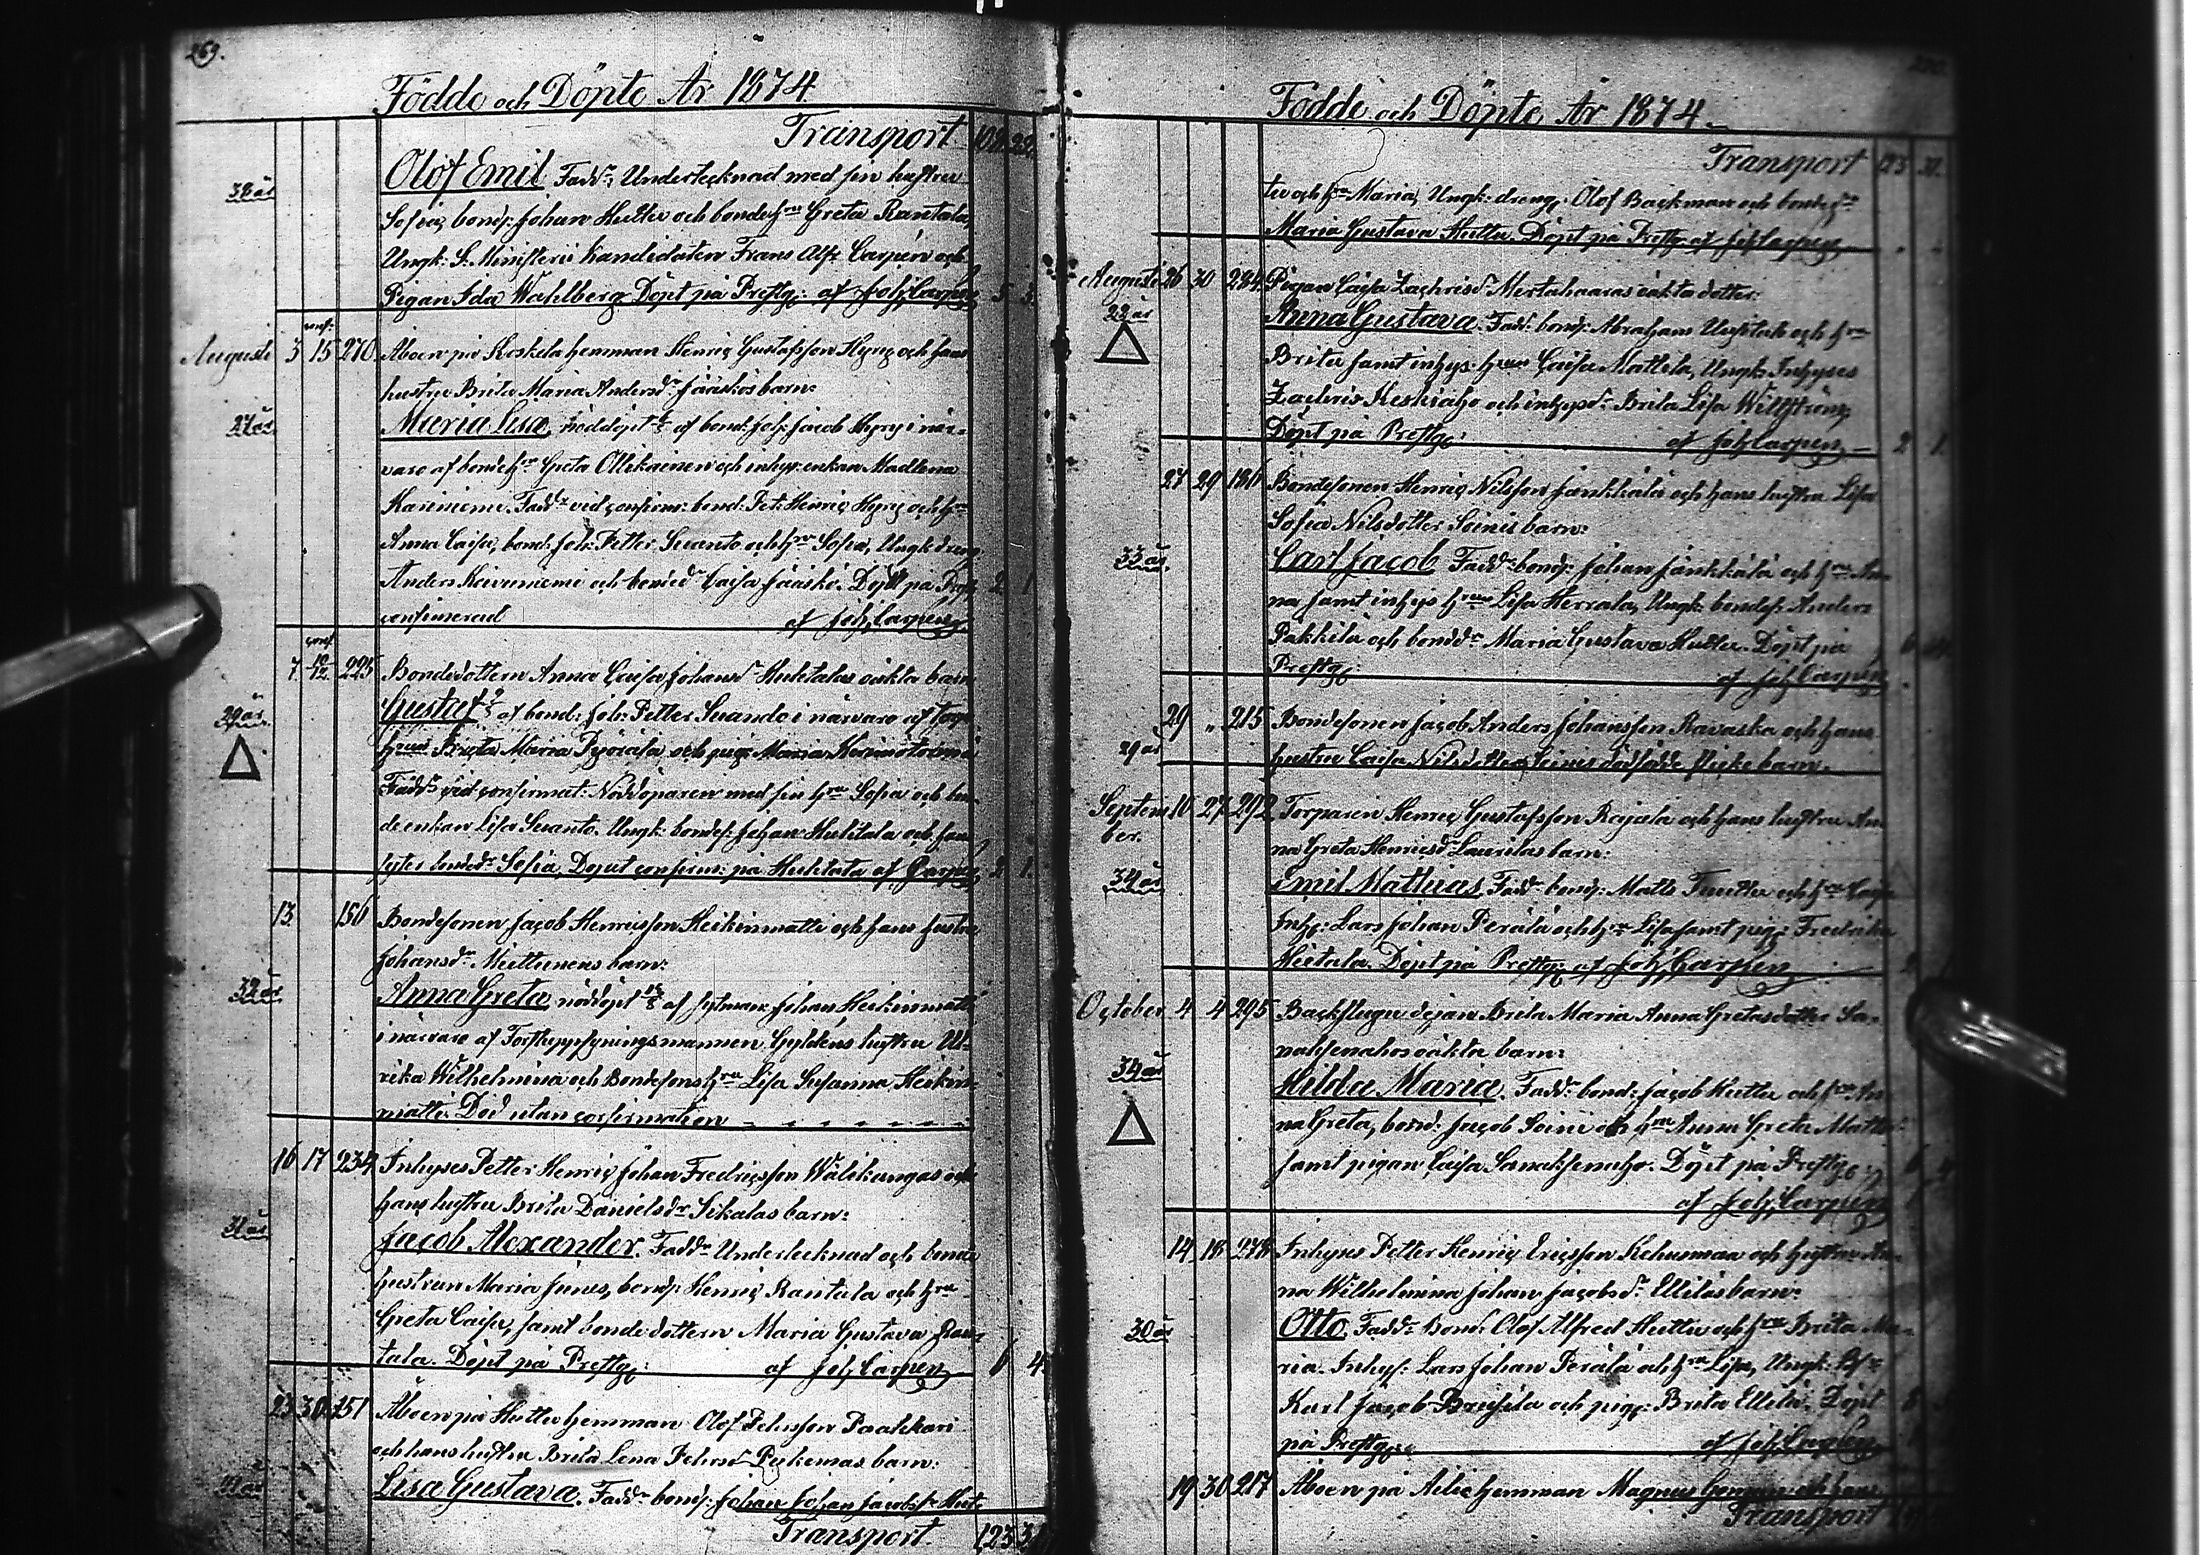 269.
Födde och Döpte År 1874
Transport 108 22
38 år Olof Emil. Fadd:r Undertecknad med sin hustru
Sofia, bond: Johan Huttu och bondeh:ru Greta Rantala,
Ungk: S. Ministerii Kandidaten Frans Alfr Carpén och
Pigan Ida Wahlberg. Döpt på Prestg: af Joh, Carpén 5 3
conf.
Augusti 3 15 270 Åboen på Koskela hemman Henric Gustafsson Hyry och hans
hustru Brita Maria Andersd:r Jääskös barn:
27 år Maria Lisa, nöddöpt af bond: Joh: Jacob Hyry i när-
varo af bondeh:ru Greta Ollikainen och inhys: enkan Madlena
Fadd:r vid confirm: bond: Pet: Henric Hyry och h:ru
Anna Caisa, bond: Joh: Petter Suanto och h:ru Sofia, Ungk: dreng
Anders Koivuniemi och bonded:r Caisa Jääskö. Döpt på Prestg: 2 1
confirmerad af Joh, Carpén
conf.
7 225 Bondedottern Anna Caisa Johansd:r Huhtalas oäkta barn
29 år Gustaf af bond: Joh: Petter Suando i närvaro af torp:
h:run Brita Maria och pig: Maria
Fadd:r vid confirmat: Nöddöparen med sin h:ru Sofia och bon-
de enkan Lisa Suanto. Ungk: bondes: Johan Huhtala och hans
syster bonded:r Sofia, Dopet confirm: på Huhtala af Carpén 2 1
13 156 Bondesonen Jacob Henricsson Heikinmatti och hans hustru
Johansd:r Muttunens barn:
32 år Anna Greta nöddöpt af sytman: Johan Heikinmatti
i närvaro af Forstuppsyningsmannen Gyldéns hustru Ul-
rika Wilhelmina och Bondesons h:ru Lisa Susanna Heikin-
matti. Död utan confirmation
16 17 234 Inhyses Petter Henric Johan Fredricsson Wälikangas och
hans hustru Brita Danielsd:r Sikalas barn:
31 år Jacob Alexander. Fadd:r Undertecknad och bonde
hustrun Maria Junes, bonds: Henric Rantala och h:ru
Greta Caisa, samt bonde dottern Maria Gustava Ran-
tala. Döpt på Prestg: af Joh, Carpén 6 4
23 30 151 Åboen på Huttu hemman Olof Pehrsson Paakkari
och hans hustru Brita Lena Pehrsd:r barn:
Lisa Gustava. Fadd:r bonds: Johan Johan Jacobss: Hut-
Transport. 123 31
Födde och Döpte År 1874
Transport 123 31
tu och h:ru Maria, Ungk: dreng: Olof Backman och bonded:r
Maria Gustava Huttu. Döpt på Prestg: af Joh, Carpén
Augusti 26 30 284 Pigan Caisa Zachrisd:r Mertahaaras oäkta dotter:
22 år Anna Gustava. Fadd: bonds: Abraham och h:ru
Brita samt inhys: h:run Caisa Mattila, Ungk: Inhyses
Zachris Keskiaho och inhysd:r Brita Lisa Willström,
Döpt på Prestg: af Joh, Carpén 2 1
27 29 186 Bondesonen Henric Nilsson Jänkkälä och hans hustru Lisa
Sofia Nilsdotter Soinis barn:
33 år Carl Jacob Fadd:r bonds: Johan Jänkkälä och h:ru An-
na samt inhys h:run Lisa Herrala, Ungk: bondes: Anders
Pakkila och bondd:r Maria Gustava Huttu. Döpt på
Prestg: af Joh, Carpén
29 „ 215 Bondesonen Jacob Anders Johansson Ravaska och hans
29 år hustru Caisa Nilsdotter Soinis dödfödde flicke barn.
Septem- 10 27 292 Torparen Henric Gustafsson Rajala och hans hustru An-
ber. na Greta Henricsd:r Laurilas barn:
34 år Emil Mathias. Fadd:r bonds: Matts och h:ru Caisa
Inh: Lars Johan Perälä och h:ru Lisa samt pig: Fredrika
Hietala. Döpt på Prestg: af Joh, Carpén
October 4 4 295 Backstugu dejan Brita Maria Anna Gretasdotter Sa-
nahsenahos oäkta barn:
34 år Hilda Maria. Fadd:r bond: Jacob Huttu och h:ru An-
na Greta, bond: Jacob Soini och h:ru Anna Greta
samt pigan Caisa Sanaksenaho. Döpt på Prestg:
af Joh, Carpén
14 18 278 Inhyses Petter Henric Ericsson Kehusmaa och hustru An-
na Wilhelmina Johan Jacobsd:r Elliläs barn:
30 år Otto. Fadd:r Bond: Olof Alfred Huttu och h:ru Brita Ma-
ria. Inhys: Lars Johan Perälä och h:ru Lisa, Ungk:
Karl Jacob och pig: Brita Ellilä. Döpt
på Prestg: af Joh, Carpén
19 30 217 Åboen på hemman Magnus och hans
Transport